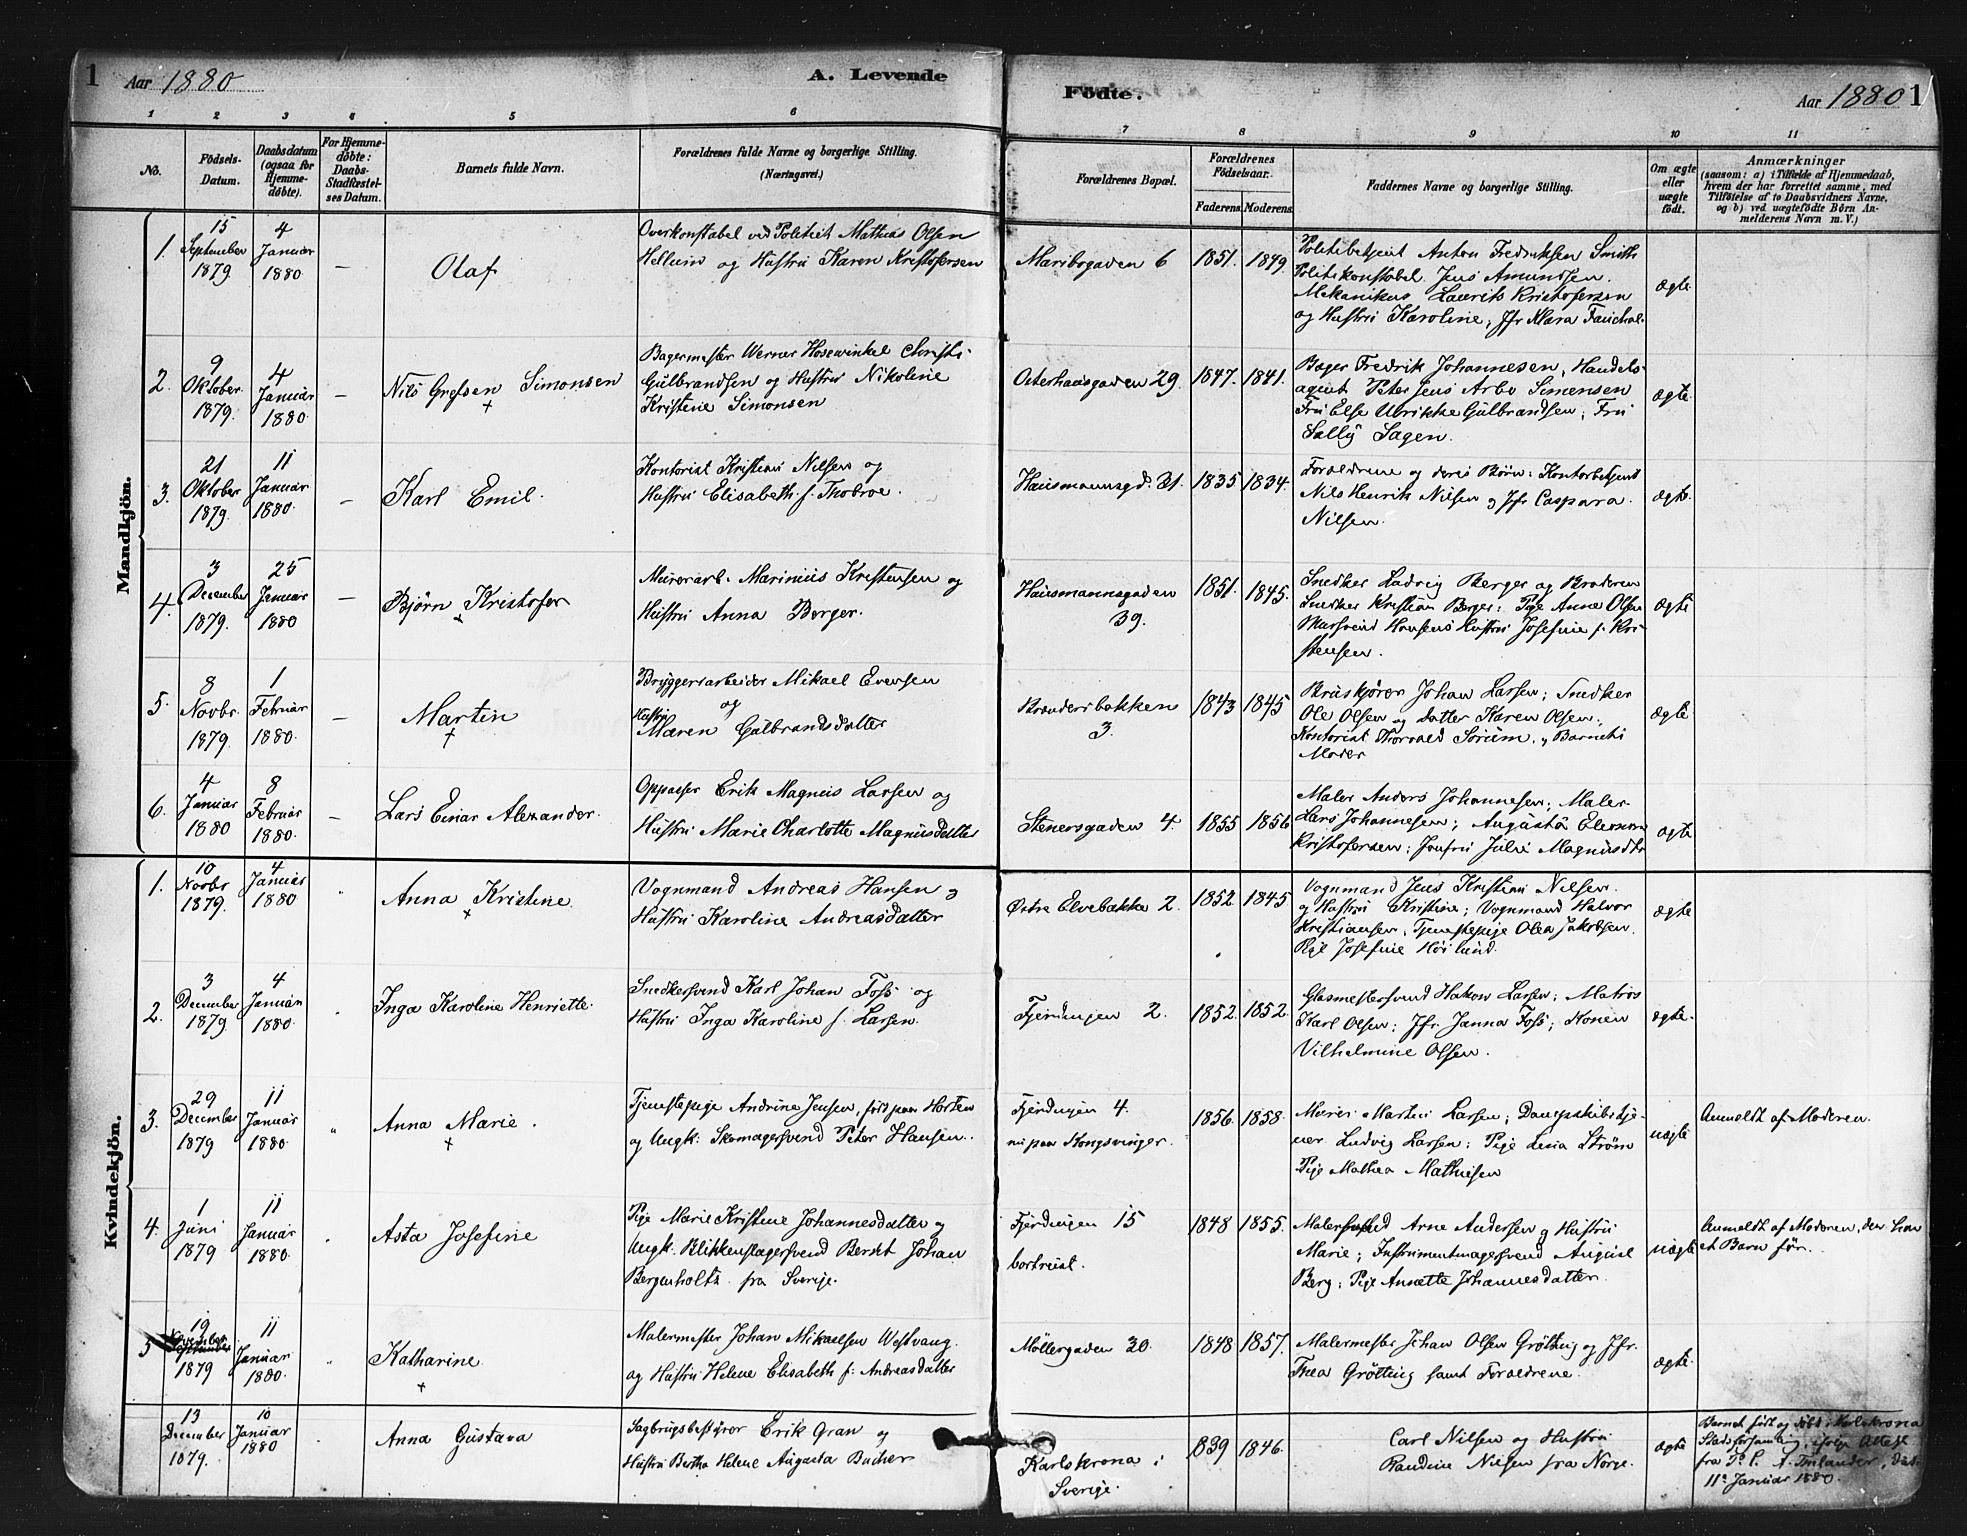 1 Aar 1880 A. Levende
Födte. Aar 1880 1
1 2 3 4 5 6
7 8 9 10 11
No.
Födsels-
Datum.
Daabsdatum
(ogsaa for
Hjemme-
döbte).
For Hjemme-
döbte:
Daabs-
Stadfæstel-
ses Datum.
Barnets fulde Navn.
Forældrenes fulde Navne og borgerlige Stilling.
(Næringsvei.)
Forældrenes Bopæl.
Forældrenes
Födselsaar.
Faderens. Moderens.
Faddernes Navne og borgerlige Stilling.
Om ægte
eller
uægte
födt.
Anmærkninger
(saasom: a) i Tilfælde af Hjemmedaab,
hvem der har forrettet samme, med
Tilföielse af to Daabsvidners Navne,
og b) ved uægtefödte Börn An-
melderens Navn m. V.)
Mandkjön.
1. 15 September 1879 4 Januar 1880 – Olaf
Overkonstabel ved Politiet Mathias Olsen
Hellum og Hustru Karen Kristofersen
Maribogaden 6 1851. 1849
Politibetjent Anton Fredriksen Smith
Politikonstabel Jens Amundsen.
Mekanikus Laurits Kristofersen
og Hustru Karoline; Jfr Klara
ægte
2. 9 Oktober 1879. 4 Januar 1880. – Nils Simonsen
Bagermester Werner Hosewinkel Christi-
Gulbrandsen og Hustru Nikoline
Kristine Simonsen
Osterhausgaden 29. 1847. 1841.
Bager Fredrik Johannesen, Handels-
agent Peter Jens Arbo Simensen
Fru Else Ulrikke Gulbrandsen; Fru
Sally Sagen.
ægte.
3. 21 Oktober 1879. 11 Januar 1880. – Karl Emil.
Kontorist Kristian Nilsen og
Hustru Elisabeth f. Thobroe.
Hausmannsgd. 31. 1835 1834.
Forældrene og deres Børn: Kontorbetjent
Nils Henrik Nilsen og Jfr Caspara
Nilsen.
ægte.
4. 3 December 1879. 25 Januar 1880 – Bjørn Kristofer
Murerarb. Marinius Kristensen og
Hustru Anna Berger.
Hausmannsgaden
39.
1851. 1845.
Snedker Ludvig Berger og Broderen
Snedker Kristian Berger; Pige Anne Olsen
Hansens Hustru Josefine f. Kri-
stensen.
ægte
5. 8 Novbr. 1879. 1 Februar 1880. – Martin
Bryggeriarbeider Mikael Evensen
og
Hustru
Maren Gulbrandsdatter
3. 1843 1845
Johan Larsen; Snedker
Ole Olsen og Datter Karen Olsen;
Kontorist Thorvald Sørum, Barnets
Moder
ægte
6. 4 Januar 1880 8 Februar 1880. – Lars Einar Alexander.
Oppasser Erik Magnus Larsen og
Hustru Marie Charlotte Magnusdatter
Stenersgaden 4. 1855 1856
Maler Anders Johannesen; Maler
Lars Johannesen; Augusta
Kristofersen; Jomfru Julie Magnusdtr
ægte
Kvindekjön.
1. 10 Novbr 1879. 4 Januar 1880 Anna Kristine.
Vognmand Andreas Hansen og
Hustru Karoline Andreasdatter
Østre Elvebakke 2. 1852 1845
Vognmand Jens Kristian Nilsen
og Hustru Kristine; Vognmand Halvor
Kristiansen; Tjenestepige Olea Jakobsen.
Pige Josefine Høilund.
ægte
2. 3 December 1879 4 Januar 1880. Inga Karoline Henriette.
Snedkersvend Karl Johan Foss og
Hustru Inga Karoline f. Larsen.
Fjerdingen 2. 1852. 1852.
Glasmestersvend Hakon Larsen; Matros
Karl Olsen; Jfr. Janna Foss; Konen
Vilhelmine Olsen.
ægte.
3. 29 December 1879 11 Januar 1880. Anna Marie.
Tjenestepige Andrine Jensen, født paa Horten
og Ungk. Skomagersvend Peter Hansen.
Fjerdingen 4.
nu paa Kongsvinger.
1856. 1858.
Murer Martin Larsen; Dampskibstje-
ner Ludvig Larsen; Pige Lena Strøm
Pige Mathea Mathiesen
uægte
Anmeldt af Moderen.
4. 1 Juni 1879 11 Januar 1880. Asta Josefine
Pige Marie Kristine Johannesdatter og
Ungk. Blikkenslagersvend Berndt Johan
Bergenholtz fra Sverige.
Fjerdingen 15
bortreist.
1848 1855.
Malersvend Arne Andersen og Hustru
Marie; Instrumentmagersvend August
Berg; Pige Annette Johannesdatter.
uægte
Anmeldt af Moderen, der har
et Barn før.
5 19 November September 1879 11 Januar 1880. Katharine
Malermester Johan Mikaelsen Westvang
og Hustru Helene Elisabeth f. Andreasdatter
Møllergaden 20. 1848 1857.
Malermester Johan Olsen Grøtting og Jfr.
Thea Grøtting samt Forældrene.
ægte.
13 December 1879. 10 Januar 1880 Anna Gustava
Sagbrugsbestyrer Erik Gran og
Hustru Bertha Helene Augusta Bucher
Karlskrona i
Sverige.
1839 1846.
Carl Nilsen og Hustru
Randine Nilsen fra Norge.
ægte
Barnet født og døbt i Karlskrona
Stadsforsamling, ifølge Attest
fra P. C. A. , dat.
11. Januar 1880.